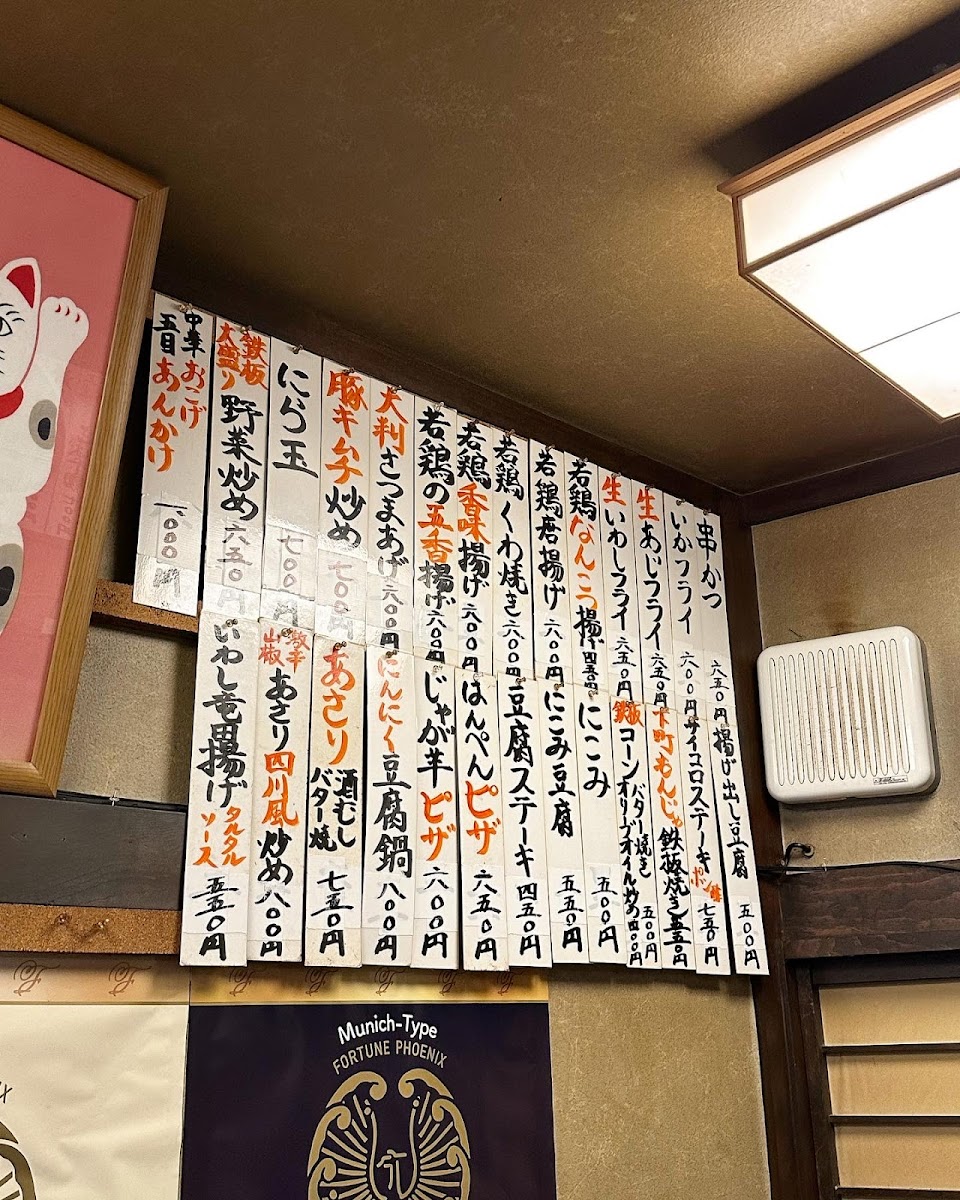 串かつ 六五〇円
いかフライ 六〇〇円
生あじフライ 六五〇円
生いわしフライ 六五〇円
若鶏なんこつ揚げ 四五〇円
若鶏唐揚げ 六〇〇円
若鶏くわ焼き 六〇〇円
若鶏香味揚げ 六〇〇円
若鶏の五香揚げ 六〇〇円
大判さつまあげ 六〇〇円
豚キムチ炒め 七〇〇円
にら玉 七〇〇円
鉄板大盛り野菜炒め 六五〇円
中華おこげ
五目あんかけ
一、〇〇〇円
揚げ出し豆腐 五〇〇円
サイコロステーキ ポン酢 七五〇円
下町もんじゃ鉄板焼き 五五〇円
鉄板コーン
バター焼き 五〇〇円
オリーブオイル炒め 四〇〇円
にこみ 五〇〇円
にこみ豆腐 五五〇円
豆腐ステーキ 四五〇円
はんぺんピザ 六五〇円
じゃが芋ピザ 六〇〇円
にんにく豆腐鍋 八〇〇円
あさり
酒むし
バター焼
七五〇円
激辛
山椒
あさり四川風炒め 八〇〇円
いわし竜田揚げ
タルタル
ソース
五五〇円
Munich-Type
FORTUNE PHOENIX